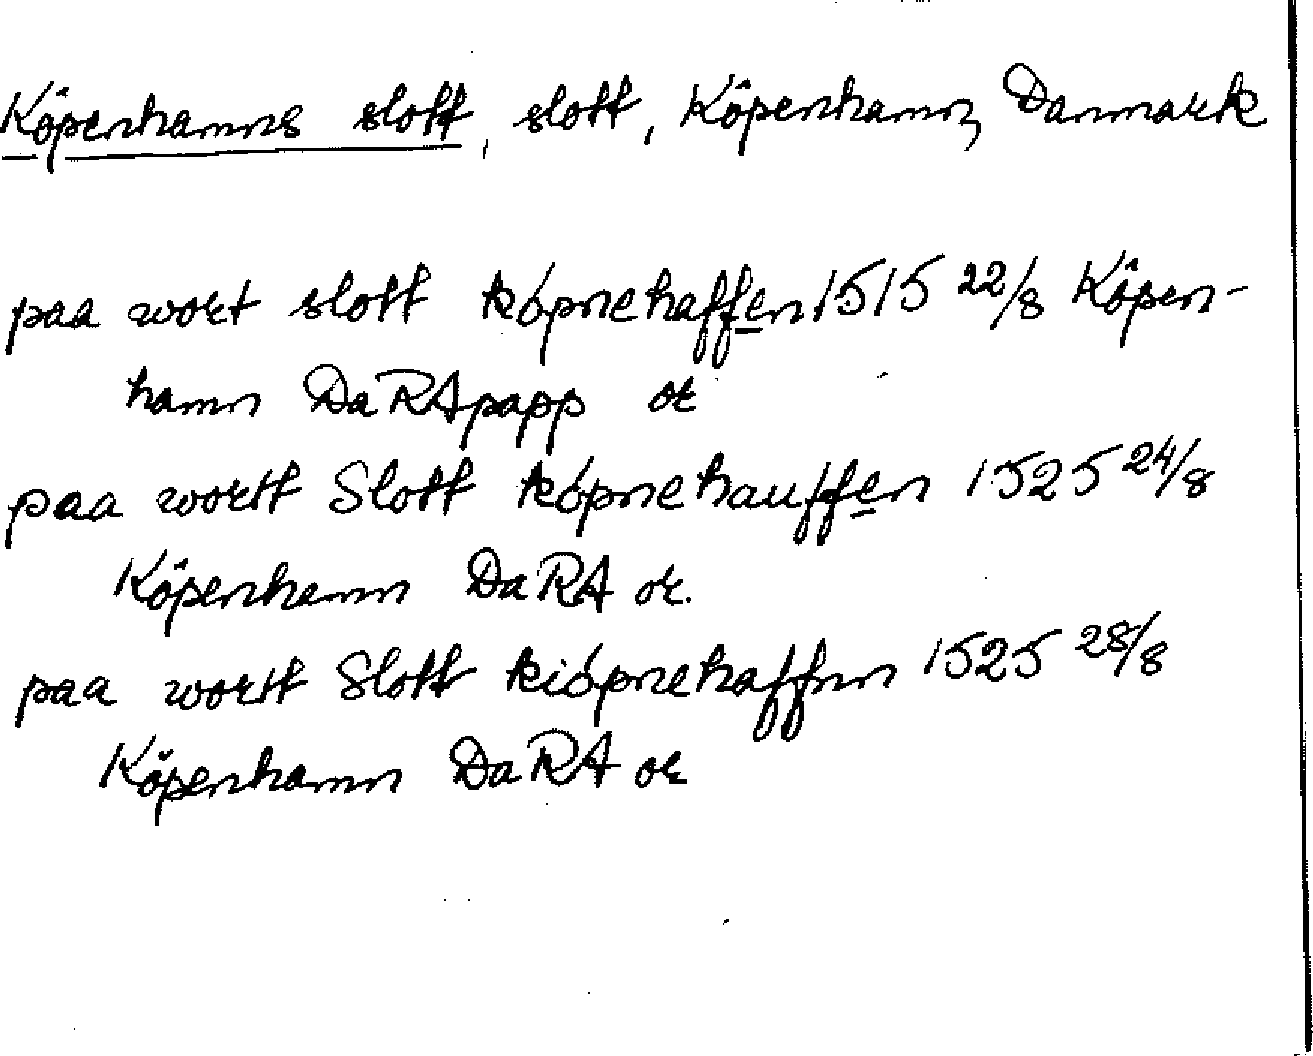 Köpenhamns slott, slott, Köpenhamn, Danmark
paa wort slott kópnehaffen 1515 22/8 Köpen-
hamn DaRApapp or
paa wortt Slott kópnehauffen 1525 24/8
Köpenhamn DaRA or.
paa wortt Slott kiópnehaffnn 1525 28/8
Köpenhamn DaRA or